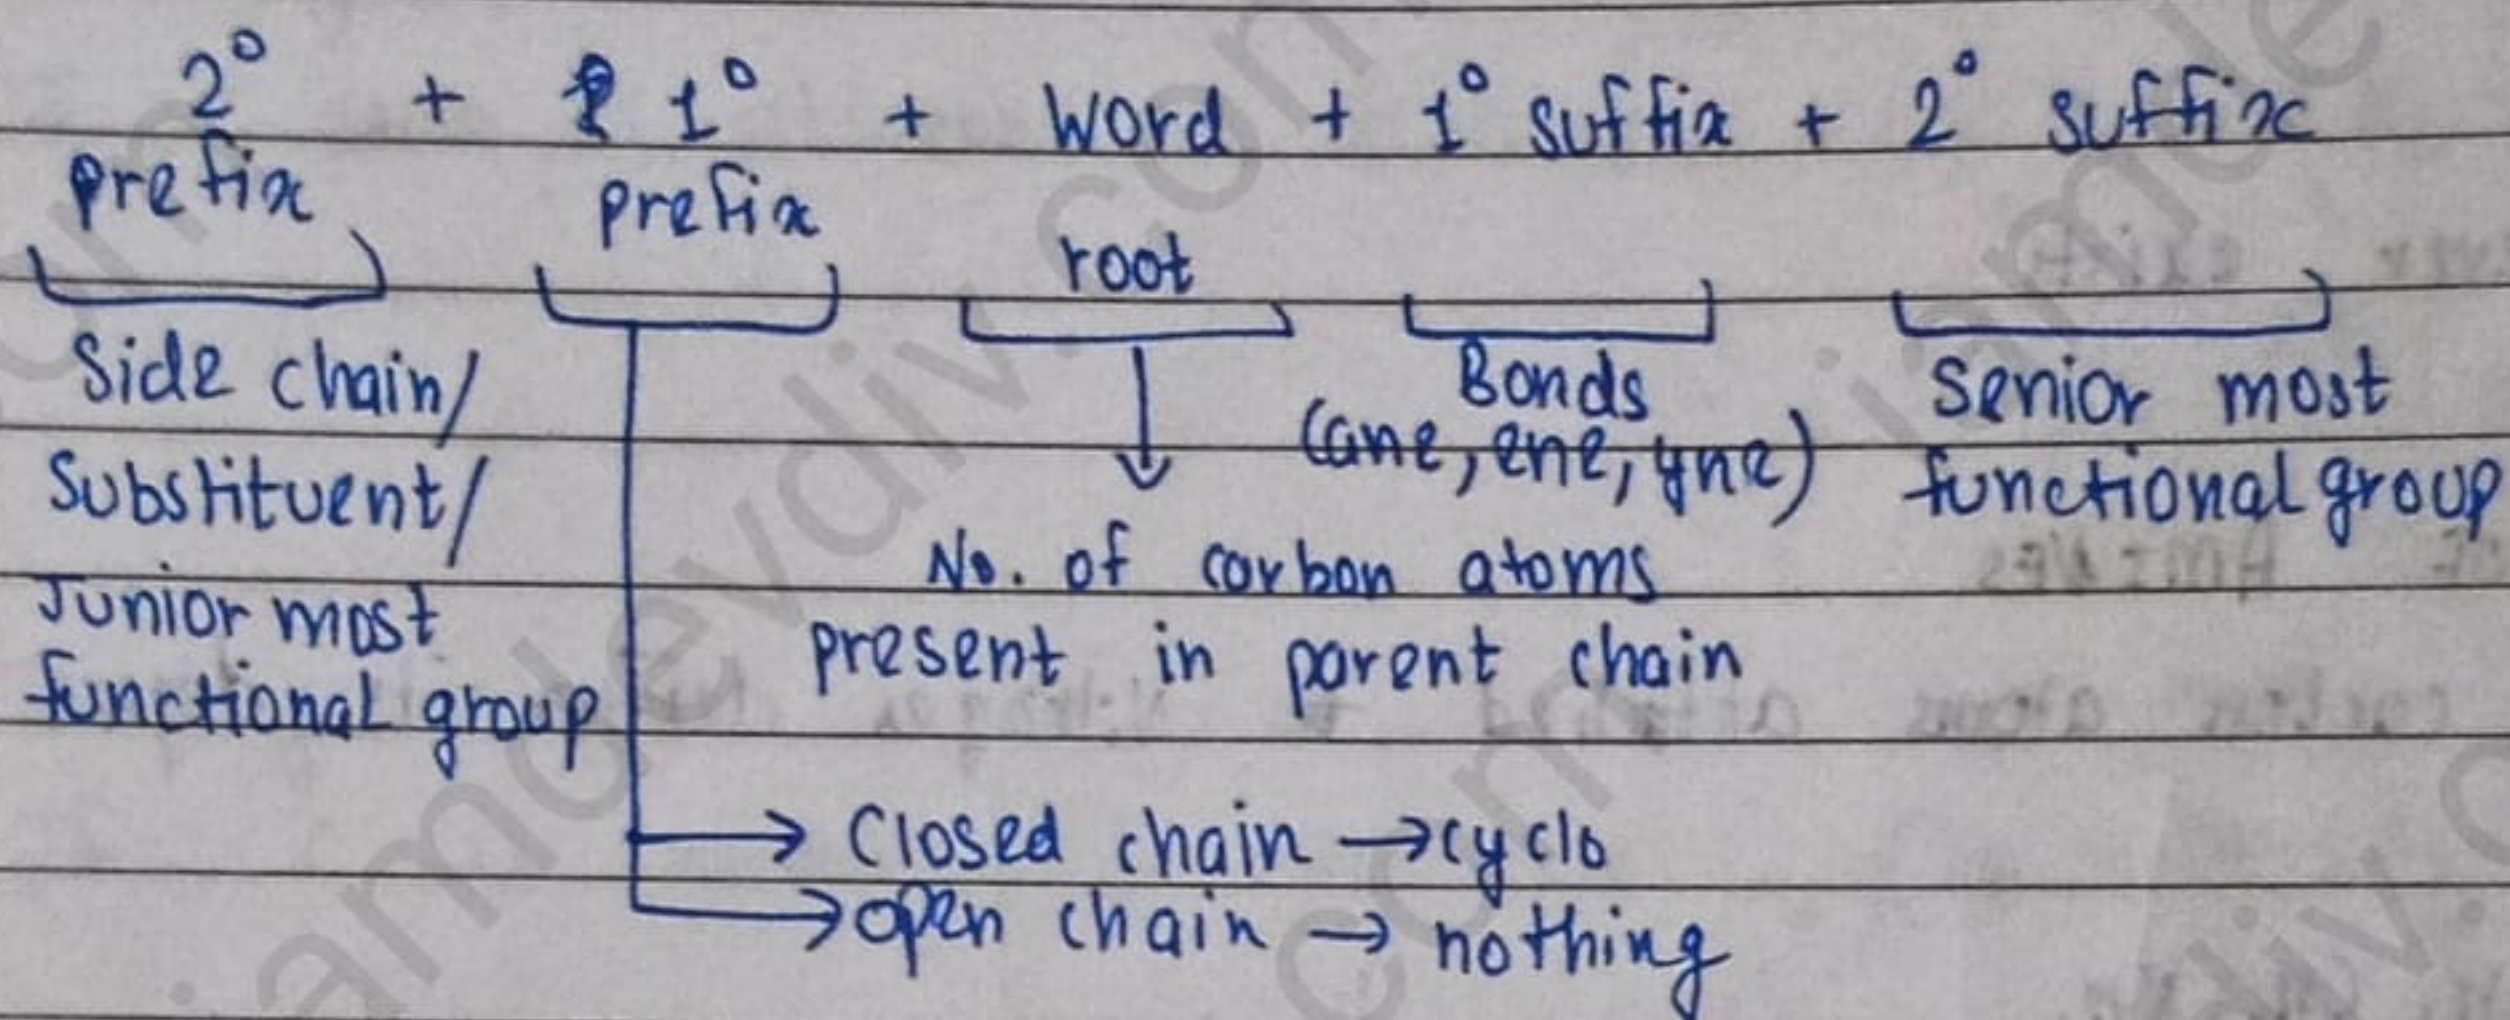 2° prefix + 1° prefix + Word root + 1° suffix + 2° suffix
Side chain/
Substituent/
Junior most
functional group
No. of carbon atoms
present in parent chain
Bonds
(ane, ene, yne)
Senior most
functional group
Closed chain → cyclo
open chain → nothing
iamdevdiv.com